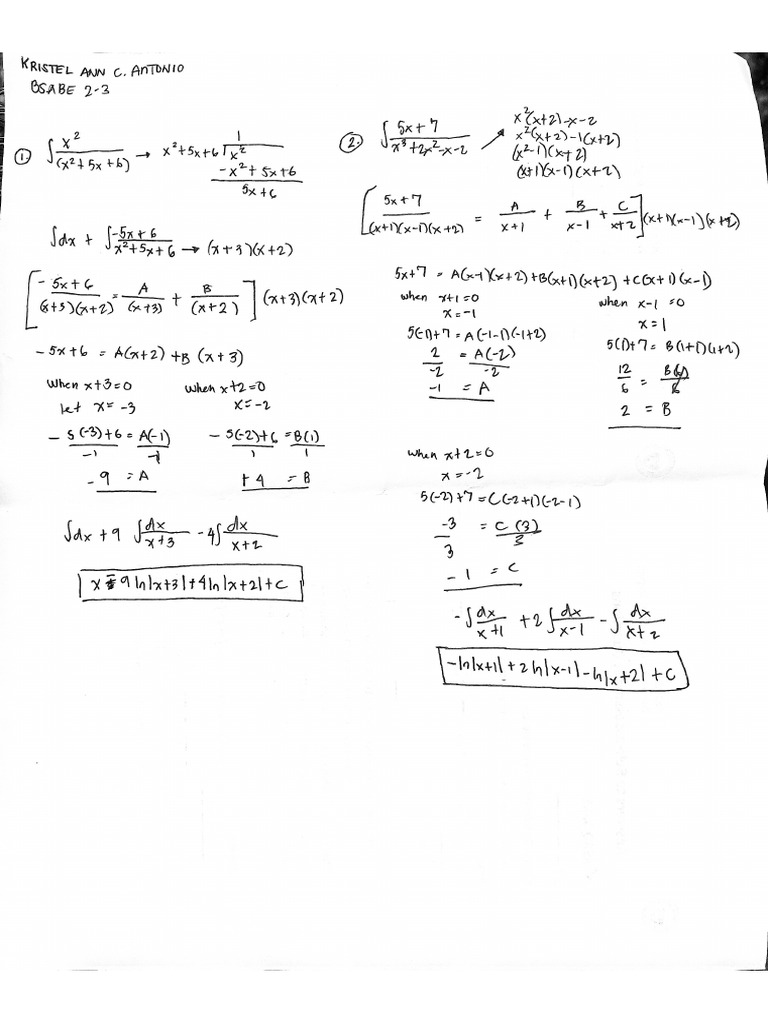 KRISTEL ANN C. ANTONIO
BSABE 2-3
1. ∫ x² / (x²+5x+6) → x²+5x+6 √ x²
1
-x²+5x+6
5x+6
∫dx + ∫ -5x+6 / x²+5x+6 → (x+3)(x+2)
[ -5x+6 / (x+3)(x+2) = A / (x+3) + B / (x+2) ] (x+3)(x+2)
-5x+6 = A(x+2)+B(x+3)
when x+3=0 when x+2=0
let x=-3 x=-2
-5(-3)+6 = A(-1) -5(-2)+6 = B(1)
-1 -1 1 1
-9 = A +4 = B
∫dx + 9 ∫ dx / x+3 - 4∫ dx / x+2
x - 9 ln|x+3| + 4 ln|x+2| + C
2. ∫ 5x+7 / x³+2x²-x-2
x²(x+2)-x-2
x²(x+2)-1(x+2)
(x²-1)(x+2)
(x+1)(x-1)(x+2)
[ 5x+7 / (x+1)(x-1)(x+2) = A / x+1 + B / x-1 + C / x+2 ] (x+1)(x-1)(x+2)
5x+7 = A(x-1)(x+2)+B(x+1)(x+2)+C(x+1)(x-1)
when x+1=0 when x-1=0
x=-1 x=1
5(-1)+7=A(-1-1)(-1+2) 5(1)+7=B(1+1)(1+2)
2 / -2 = A(-2) / -2 12 / 6 = B(6) / 6
-1 = A 2 = B
when x+2=0
x=-2
5(-2)+7=C(-2+1)(-2-1)
-3 / 3 = C(3) / 3
-1 = C
-∫ dx / x+1 + 2∫ dx / x-1 - ∫ dx / x+2
-ln|x+1|+2ln|x-1|-ln|x+2|+C